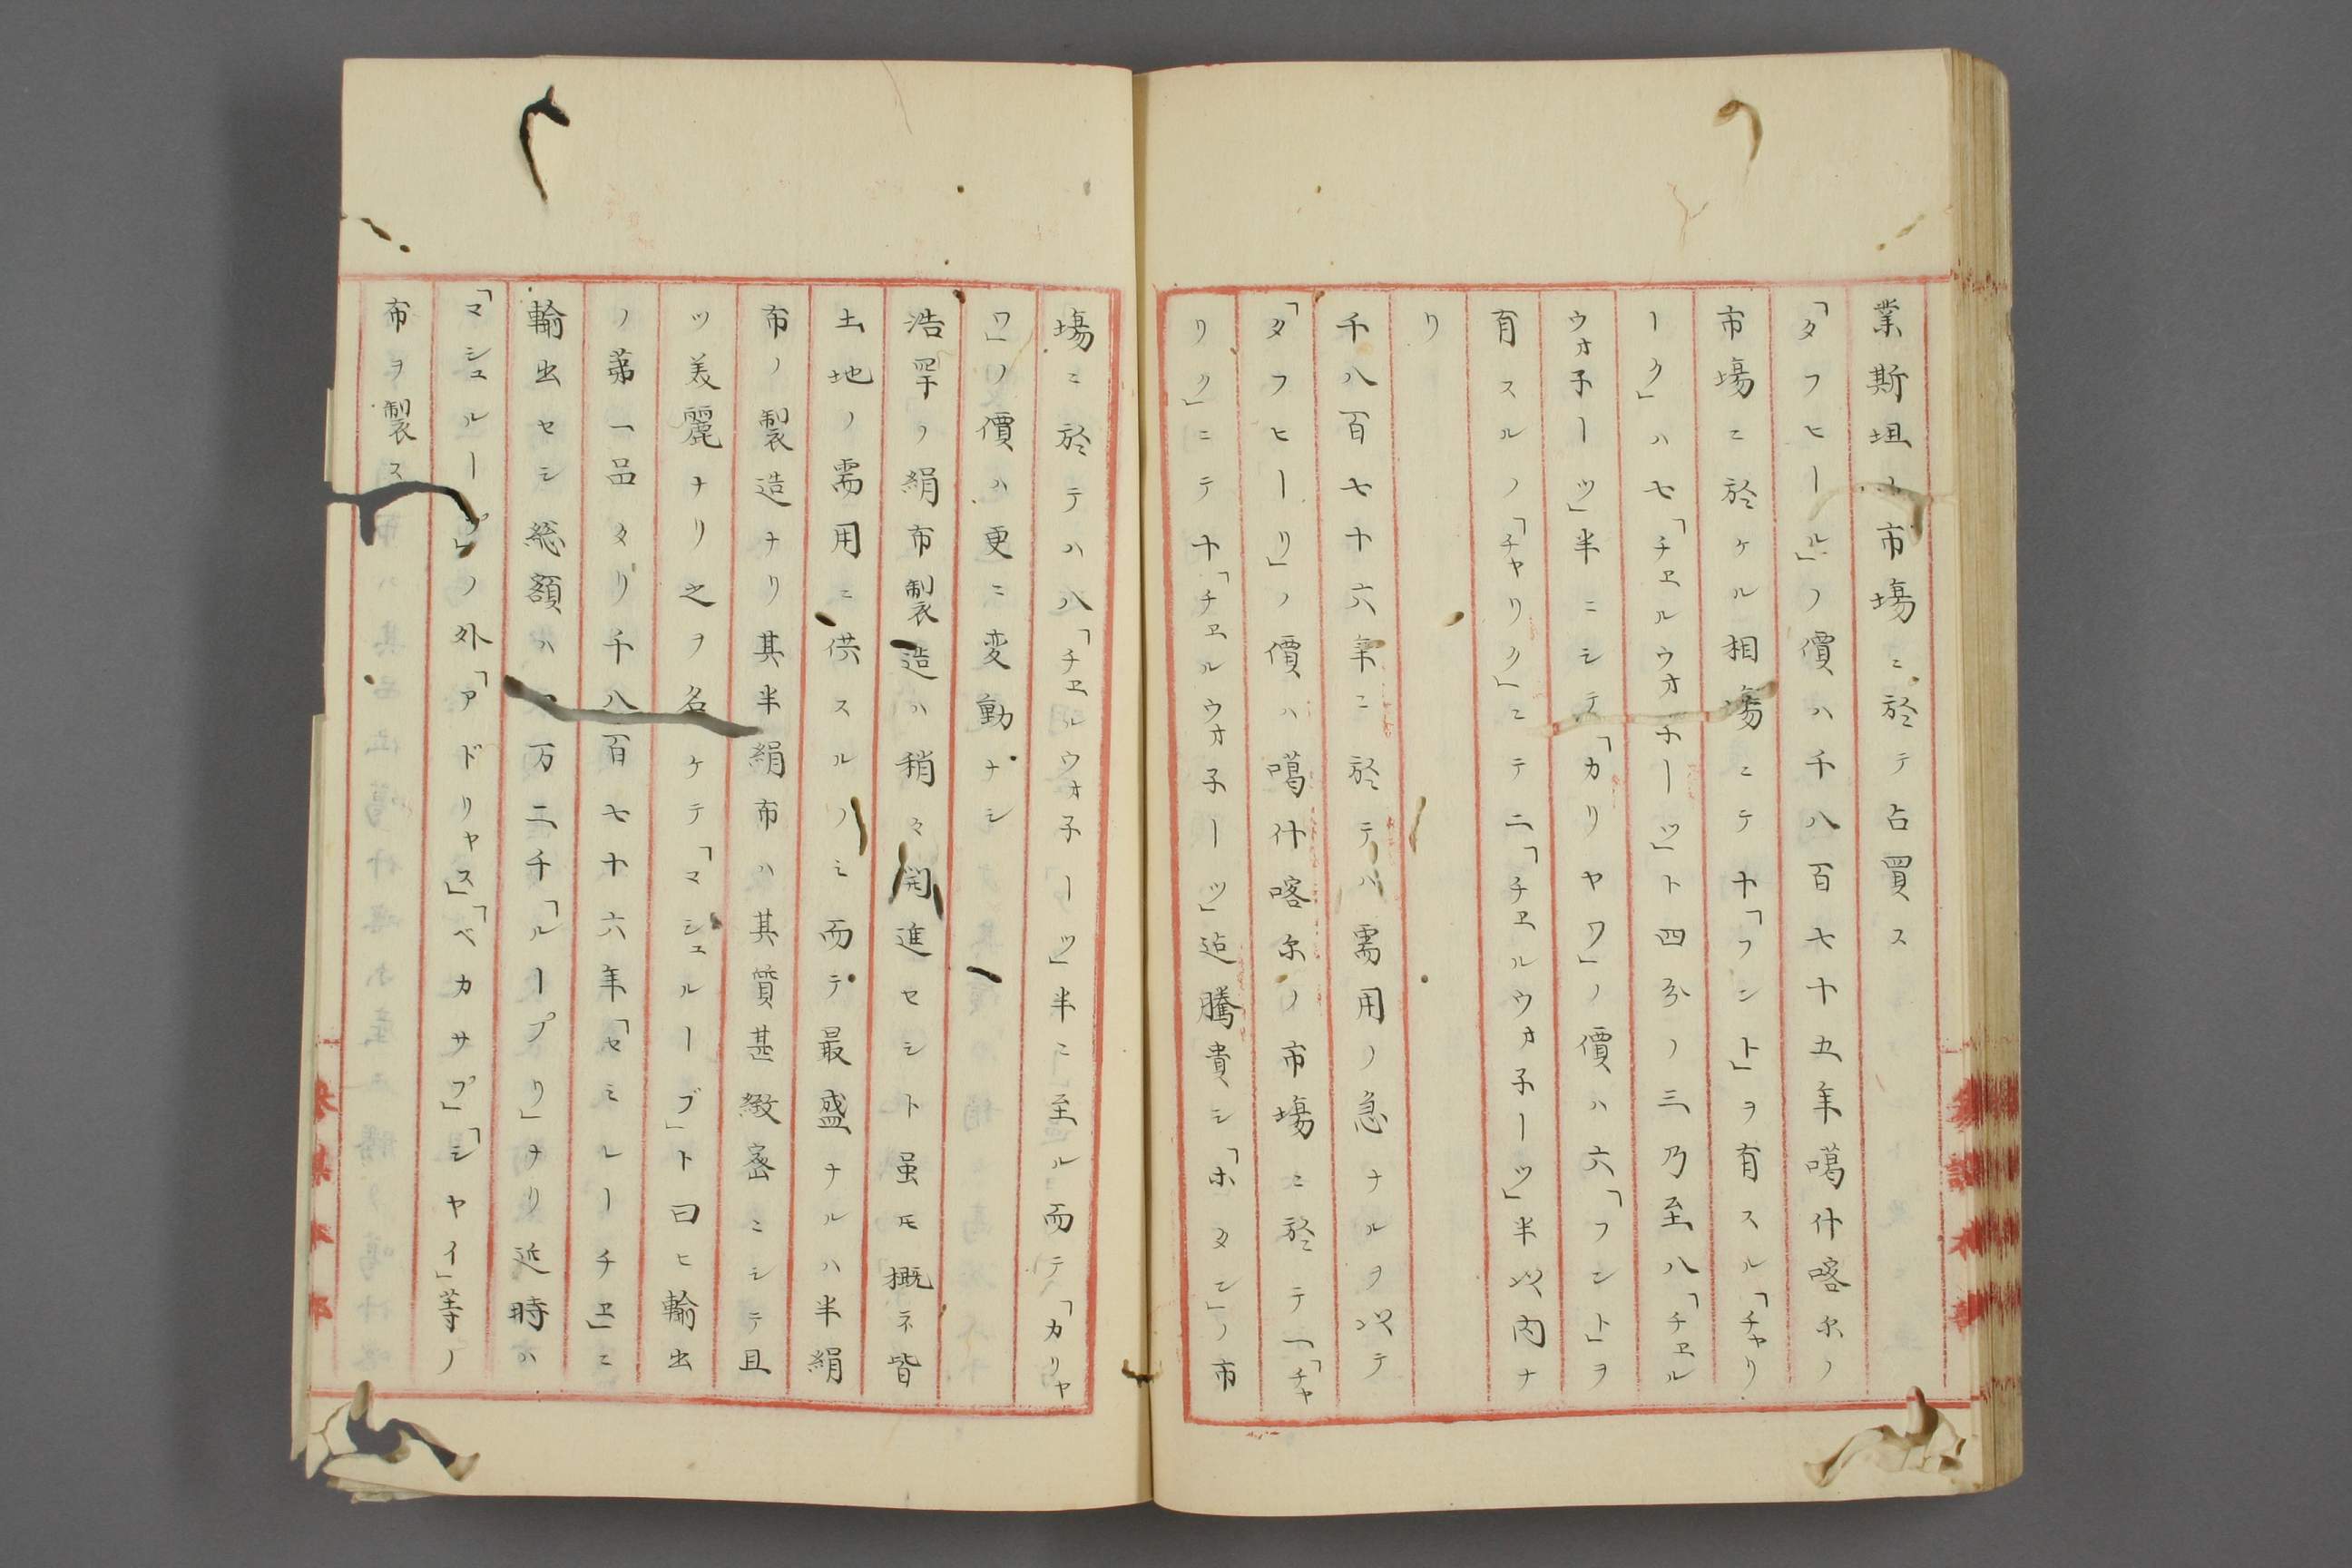 業斯坦ノ市場ニ於テ占買ス
「タフヒール」ノ價ハ千八百七十五年噶什喀尓ノ
市場ニ於ケル相場ニテ十「フント」ヲ有スル「チャリ
ーク」ハ七「チェルウオネーツ」ト四分ノ三乃至八「チェル
ウオ子ーツ」半ニシテ「カリヤワ」ノ價ハ六「フント」ヲ
有スルノ「チャリク」ニテ二「チェルウオ子ーツ」半以内ナ
リ
千八百七十六年ニ於テハ需用ノ急ナルヲ以テ
「タフヒーリ」ノ價ハ噶什喀尓ノ市場ニ於テ一「チャ
リク」ニテ十「チェルウオ子ーツ」迠騰貴シ「ホタン」ノ市
場ニ於テハ八「チェルウオ子ーツ」半ニ至ル而テ「カリヤ
ワ」ノ價ハ更ニ変動ナシ
浩罕ノ絹布製造ハ稍々開進セシト虽モ概ネ皆
土地ノ需用ニ供スルノミ而テ最盛ナルハ半絹
布ノ製造ナリ其半絹布ハ其質甚緻密ニシテ且
ツ美麗ナリ之ヲ名ケテ「マシュルーブ」ト曰ヒ輸出
ノ第一品タリ千八百七十六年「セミレーチェ」ニ
輸出セシ総額ハ万二千「ループリ」ナリ近時ハ
「マシュループ」ノ外「アドリャス」「ベカサプ」「シャイ」等ノ
布ヲ製ス